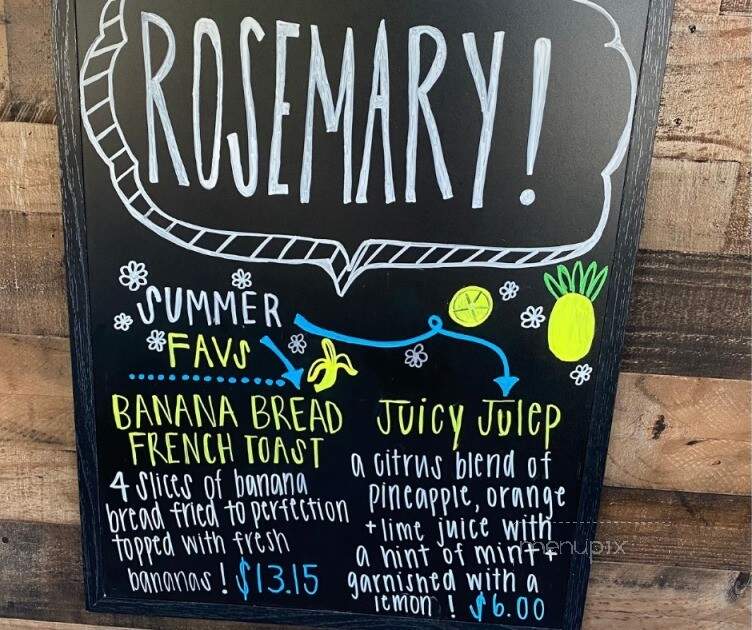 ROSEMARY!
SUMMER
FAVS
BANANA BREAD
FRENCH TOAST
4 slices of banana
bread fried to perfection
topped with fresh
bananas! $13.15
Juicy Julep
a citrus blend of
pineapple, orange
+ lime juice with
a hint of mint +
garnished with a
lemon! $6.00
menupix